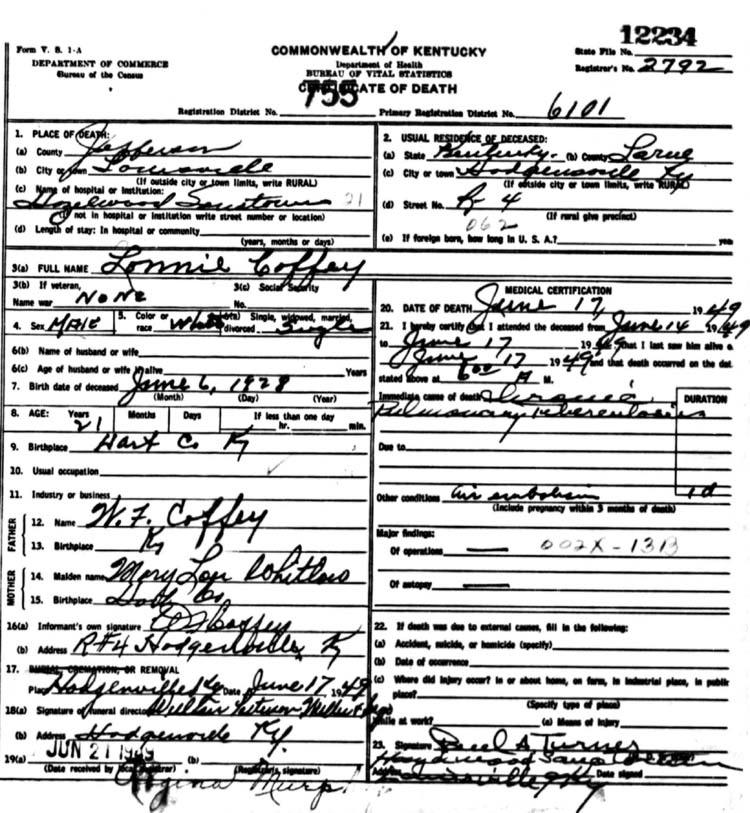 12234
Form V. S. 1-A
COMMONWEALTH OF KENTUCKY
State File No.
DEPARTMENT OF COMMERCE
Department of Health
Registrar's No. 2792
Bureau of the Census
BUREAU OF VITAL STATISTICS
CERTIFICATE OF DEATH
Registration District No. 755
Primary Registration District No. 6101
1. PLACE OF DEATH:
(a) County Jefferson
(b) City or town Louisville
(If outside city or town limits, write RURAL)
(c) Name of hospital or institution:
Hazelwood 21
(If not in hospital or institution write street number or location)
(d) Length of stay: In hospital or community
(years, months or days)
2. USUAL RESIDENCE OF DECEASED:
(a) State Kentucky (b) County Larue
(c) City or town Hodgensville Ky
(If outside city or town limits, write RURAL)
(d) Street No. R 4
(If rural give precinct)
062
(e) If foreign born, how long in U. S. A.? years
3(a) FULL NAME Lonnie Coffey
3(b) If veteran,
Name war None
3(c) Social Security
No.
4. Sex Male
5. Color or
race White
6(a) Single, widowed, married,
divorced Single
6(b) Name of husband or wife
6(c) Age of husband or wife if alive Years
7. Birth date of deceased June 6, 1928
(Month) (Day) (Year)
8. AGE: Years Months Days If less than one day
21 hr. min.
9. Birthplace Hart Co Ky
10. Usual occupation
11. Industry or business
FATHER
12. Name W. F. Coffey
13. Birthplace Ky
MOTHER
14. Maiden name Mary Lou Whitlow
15. Birthplace Co
16(a) Informant's own signature Coffey
(b) Address R#4 Hodgenville Ky
17. BURIAL, CREMATION, OR REMOVAL
Place Hodgenville Ky Date June 17, 1949
18(a) Signature of funeral director William
(b) Address Hodgenville Ky.
19(a) JUN 21 1949 (b)
(Date received by local registrar) (Registrar's signature)
MEDICAL CERTIFICATION
20. DATE OF DEATH June 17, 1949
21. I hereby certify that I attended the deceased from June 14 1949
to June 17 1949 that I last saw him alive o
June 17 1949 and that death occurred on the dat
stated above at 600 A M.
Immediate cause of death Chronic
Pulmonary tuberculosis
DURATION
Due to
Other conditions air embolism 1d
(Include pregnancy within 3 months of death)
Major findings:
Of operations 002X-13B
Of autopsy
22. If death was due to external causes, fill in the following:
(a) Accident, suicide, or homicide (specify)
(b) Date of occurrence
(c) Where did injury occur? In or about home, on farm, in industrial place, in public
place?
(Specify type of place)
While at work? (e) Means of injury
23. Signature Paul A Turner
Address Louisville Ky Date signed